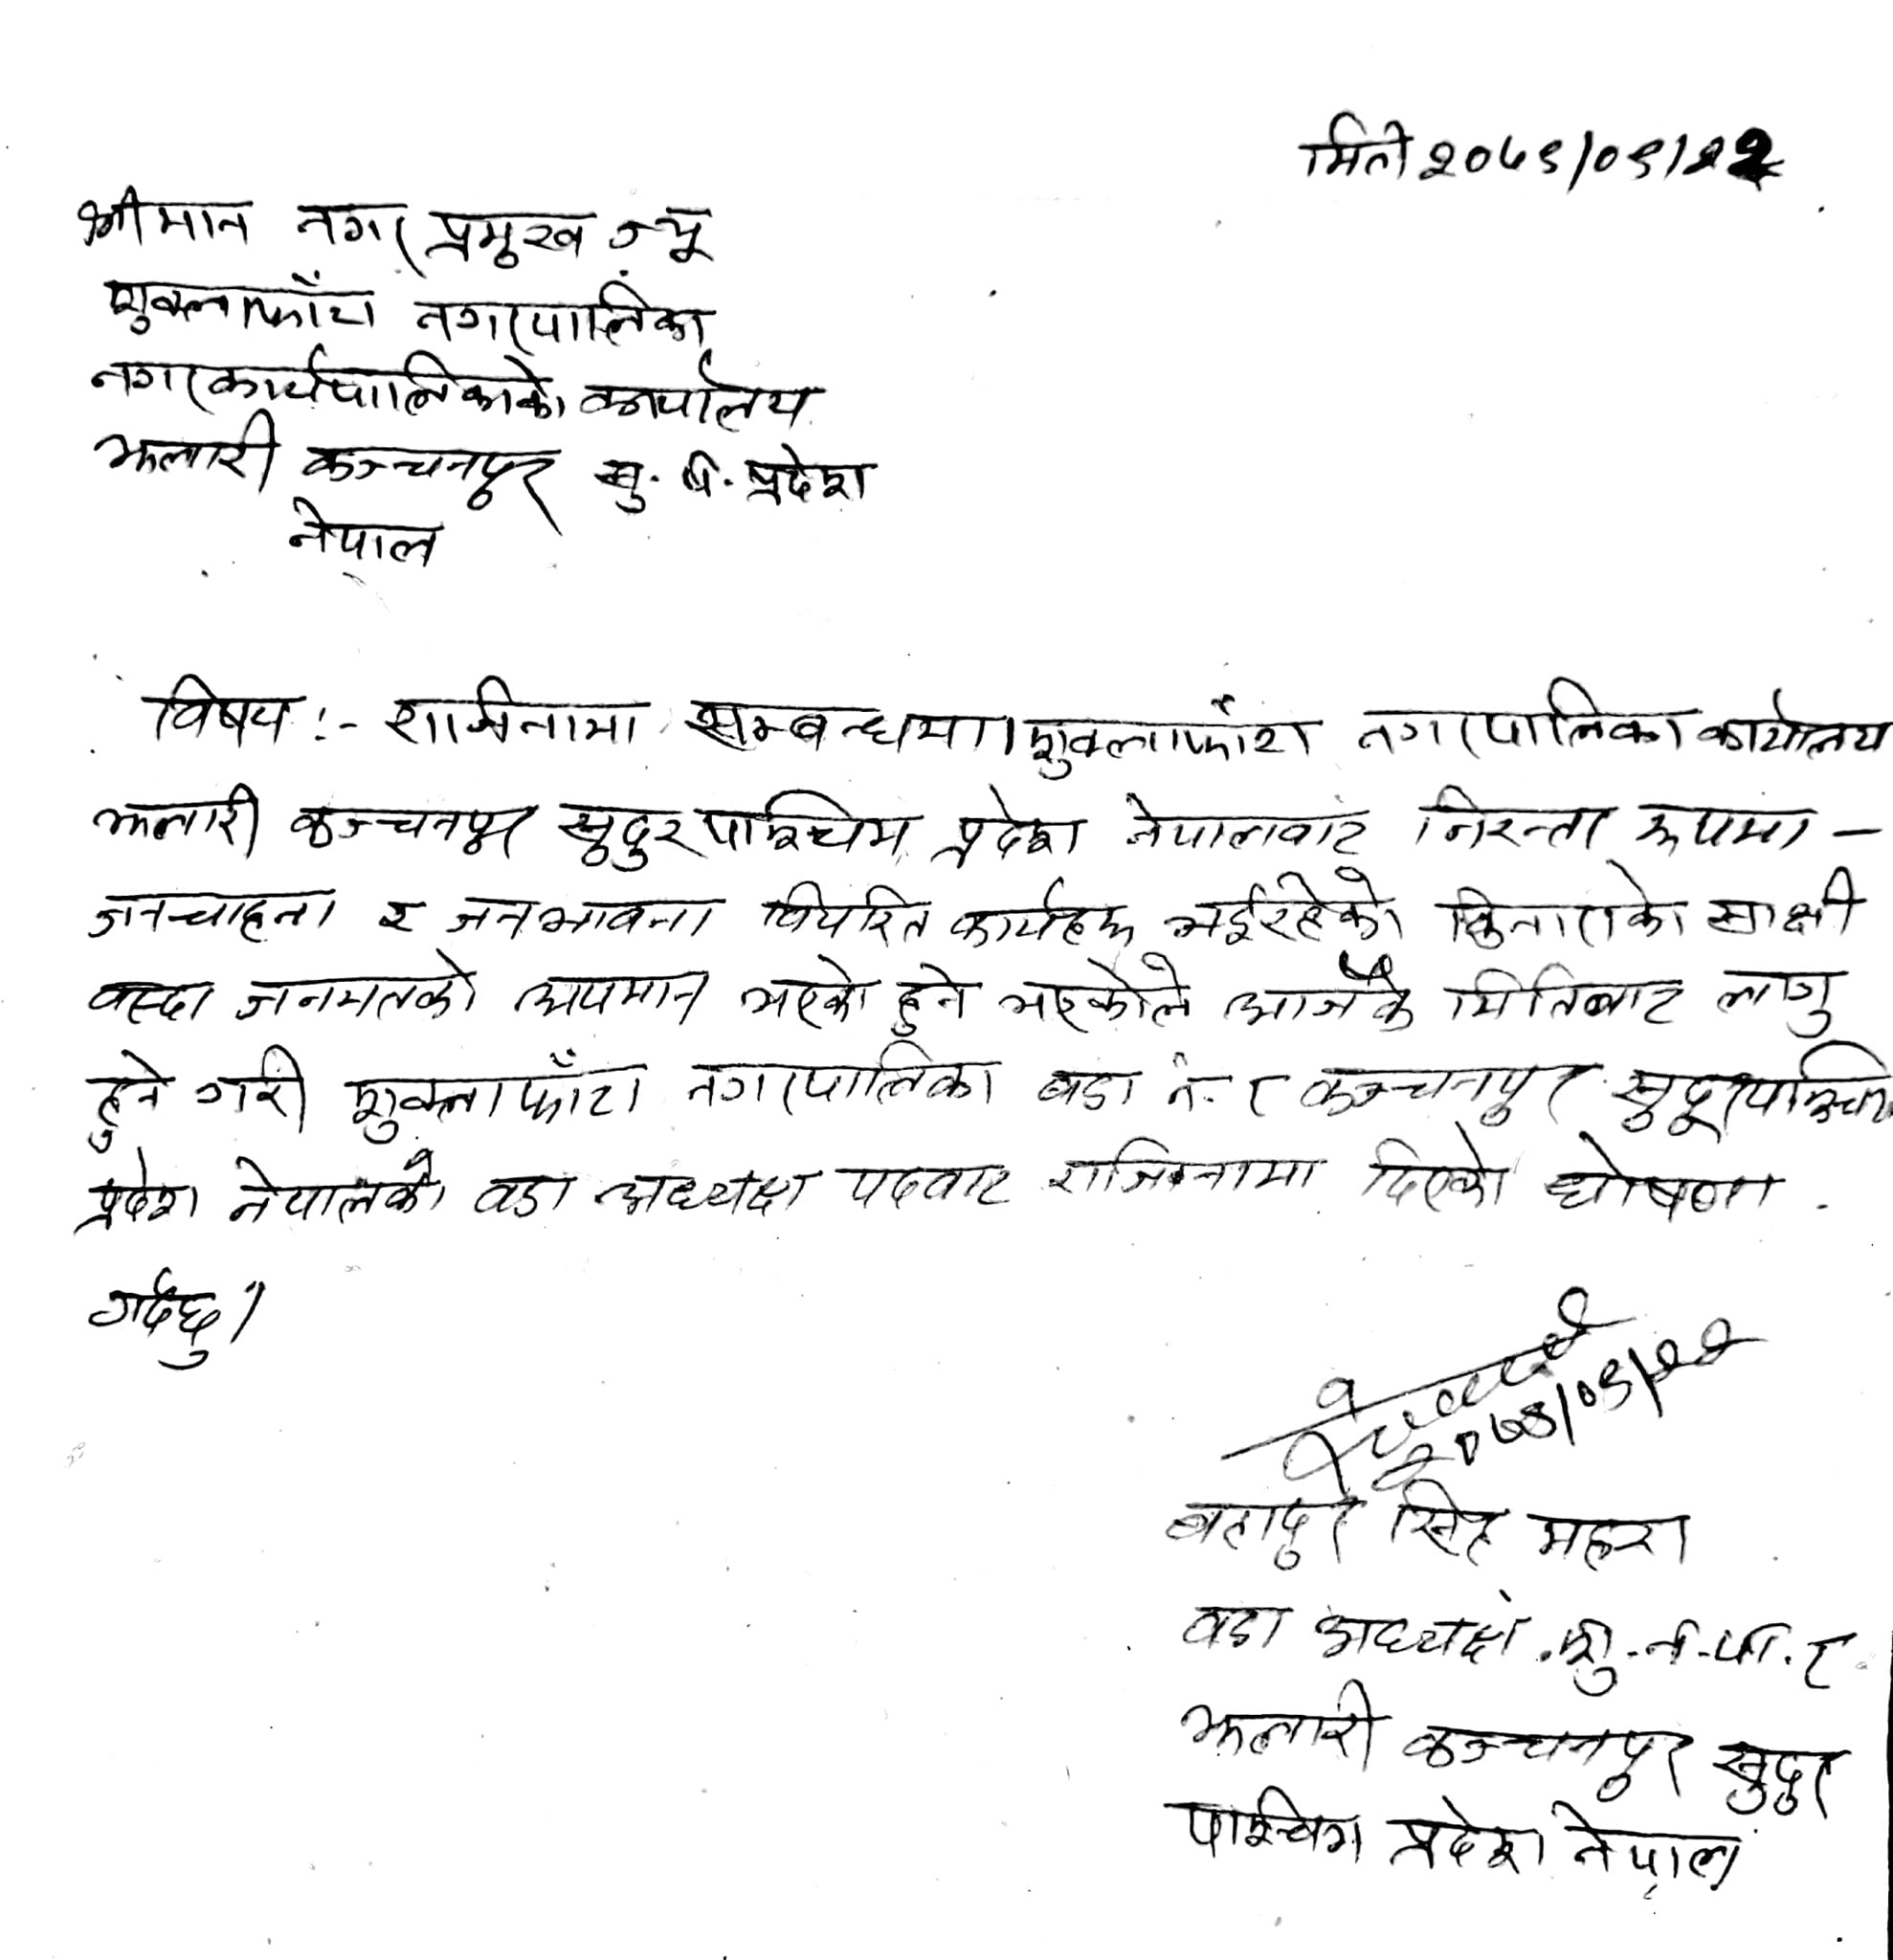 मिती २०७९/०९/२२
श्रीमान नगर प्रमुख ज्यू
शुक्लाफाँटा नगरपालिका
नगरकार्यपालिकाको कार्यालय
झलारी कञ्चनपुर सु. प. प्रदेश
नेपाल
विषय :- राजिनामा सम्बन्धमा। शुक्लाफाँटा नगरपालिका कार्यालय
झलारी कञ्चनपुर सुदुर पाश्चिम प्रदेश नेपालवाट निरन्तर रुपमा -
जनचाहना र जनभावना विपरित कार्यहरू भईरहेको साक्षी
वस्दा जनमतको अपमान भएको हुने भएकोले आजैकै मितिबाट लागु
हुने गरी शुक्लाफाँटा नगरपालिका वडा नं. ८ कञ्चनपुर सुदूरपाश्चिम
प्रदेश नेपालको वडा अध्यक्ष पदवाट राजिनामा दिएको घोषणा
गर्दछु।
२०७९/०९/२२
बहादुर सिंह महरा
वडा अध्यक्ष शु.न.पा. ८
झलारी कञ्चनपुर सुदुर
पाश्चिम प्रदेश नेपाल